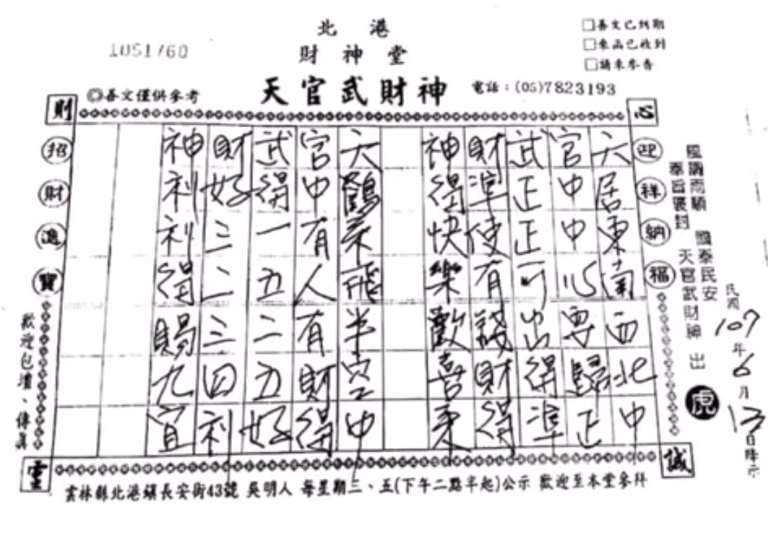 北港
財神堂
天官武財神
1051760
◎善文僅供參考
電話：(05)7823193
□善文已到期
□來函已收到
□請來參香
則
心
靈
誠
迎祥納福
招財進寶
風調雨順 國泰民安
奉旨褒封 天官武財神 出
虎
民國107年6月13日降示
天居東南西北中
官中中心要歸正
武正正可出得準
財準使有錢財得
神得快樂歡喜來
天鶴來飛半空中
官中有人有財得
武得一五二五好
財好三二三四利
神利利得賜九宜
歡迎包壇、傳真
雲林縣北港鎮長安街43號 吳明人 每星期三、五(下午二點半起)公示 歡迎至本堂參拜